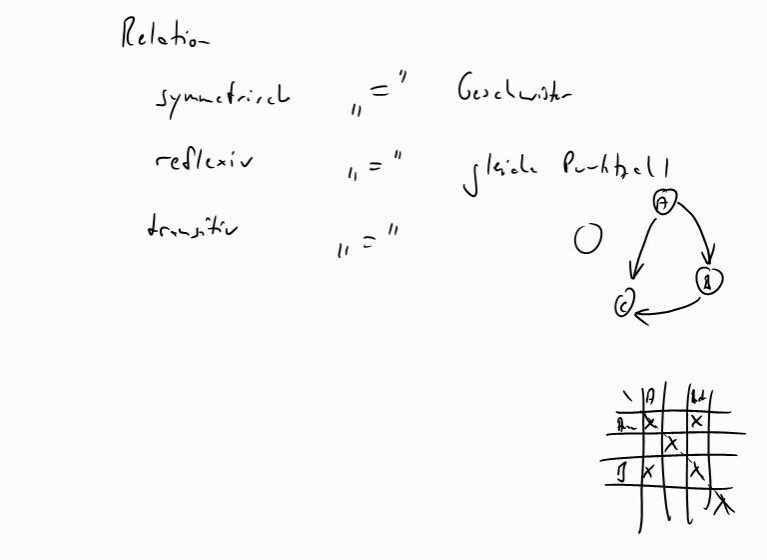 Relation
symmetrisch „=" Geschwister
reflexiv „=" gleiche Punktzahl
transitiv „="
A
B
C
A
X X
X
B X X
X